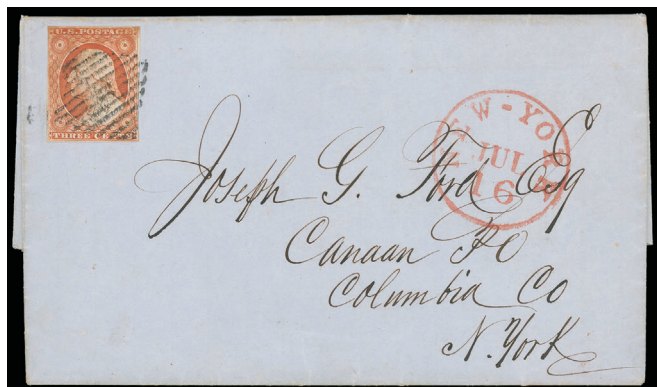 U.S. POSTAGE
THREE CENTS
NEW-YORK
JUL
16
Joseph G. Ford Esq
Canaan PO
Columbia Co
N. York